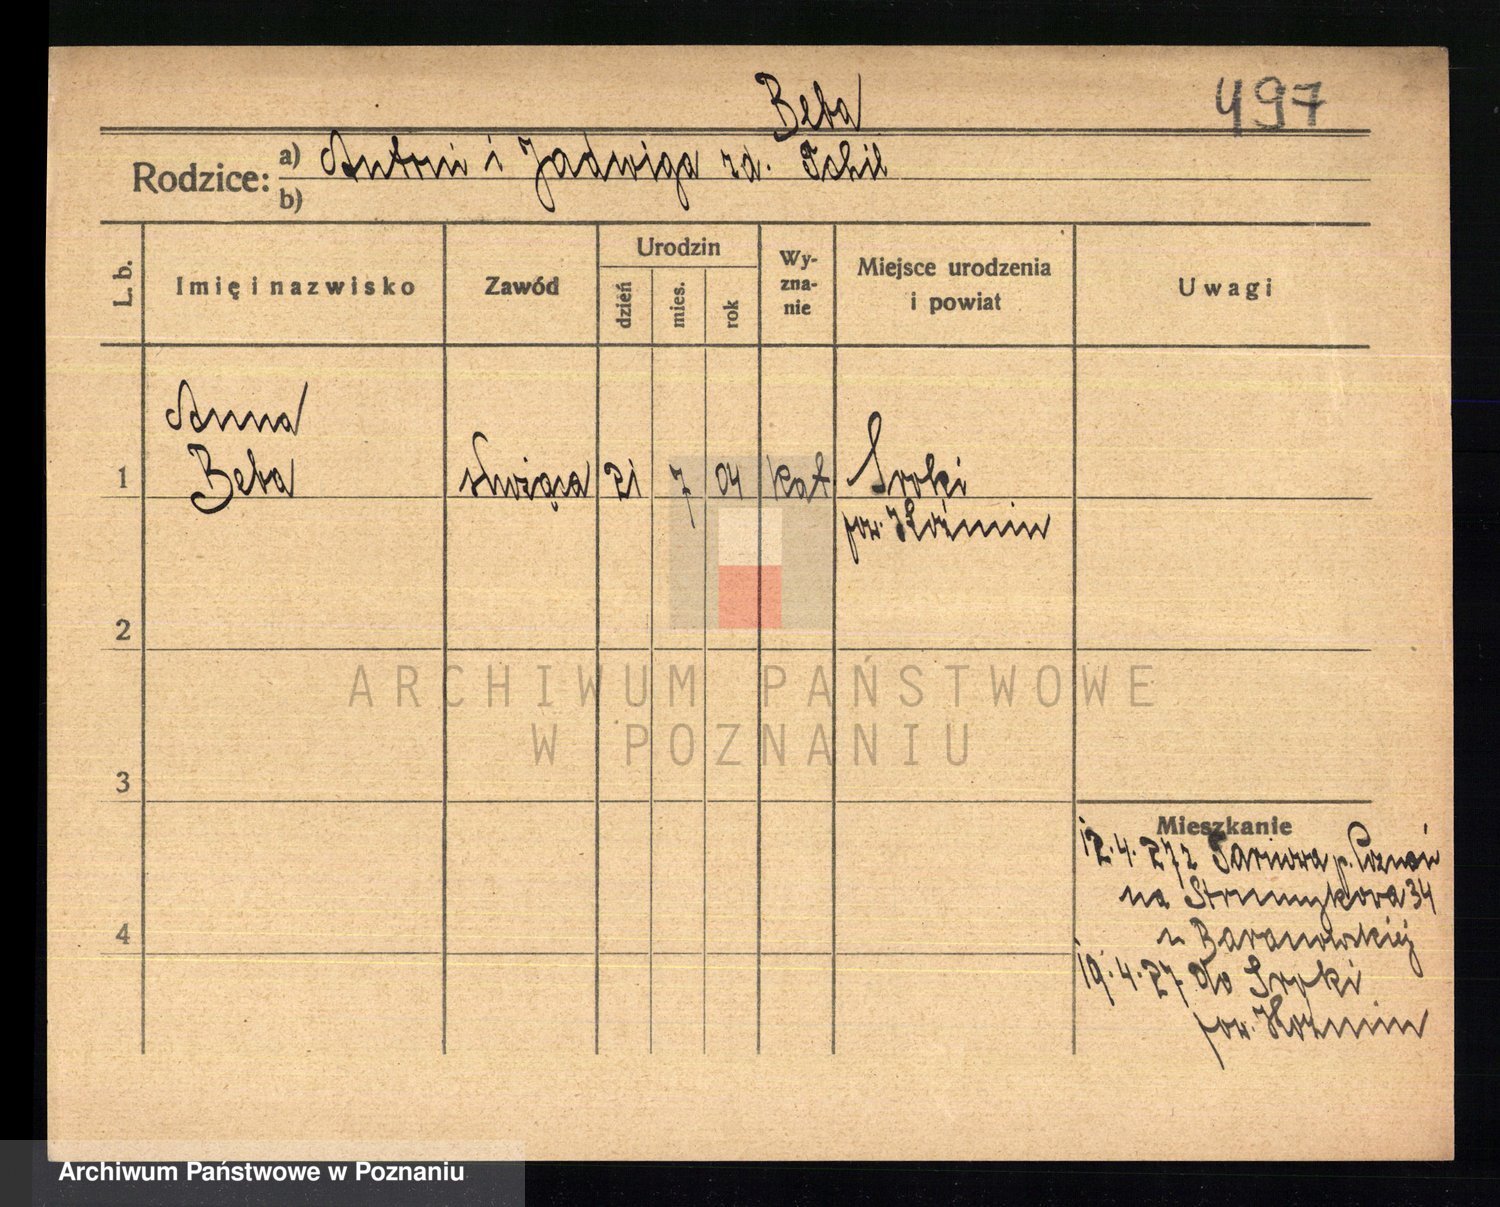 Beba
497
Rodzice: a) Antoni i Jadwiga zd. Ichil
b)
L. b.
Imię i nazwisko
Zawód
Urodzin
dzień
mies.
rok
Wy-
zna-
nie
Miejsce urodzenia
i powiat
Uwagi
Anna
1 Beba służąca 21 7 04 kat Sroki
pow. Koźmin
2
3
4
ARCHIWUM PAŃSTWOWE
W POZNANIU
Mieszkanie
12.4.27 z p. Poznań
na Strumykowa 34
u Baranowskiej
19.4.27 do Sroki
pow. Kozmin
Archiwum Państwowe w Poznaniu